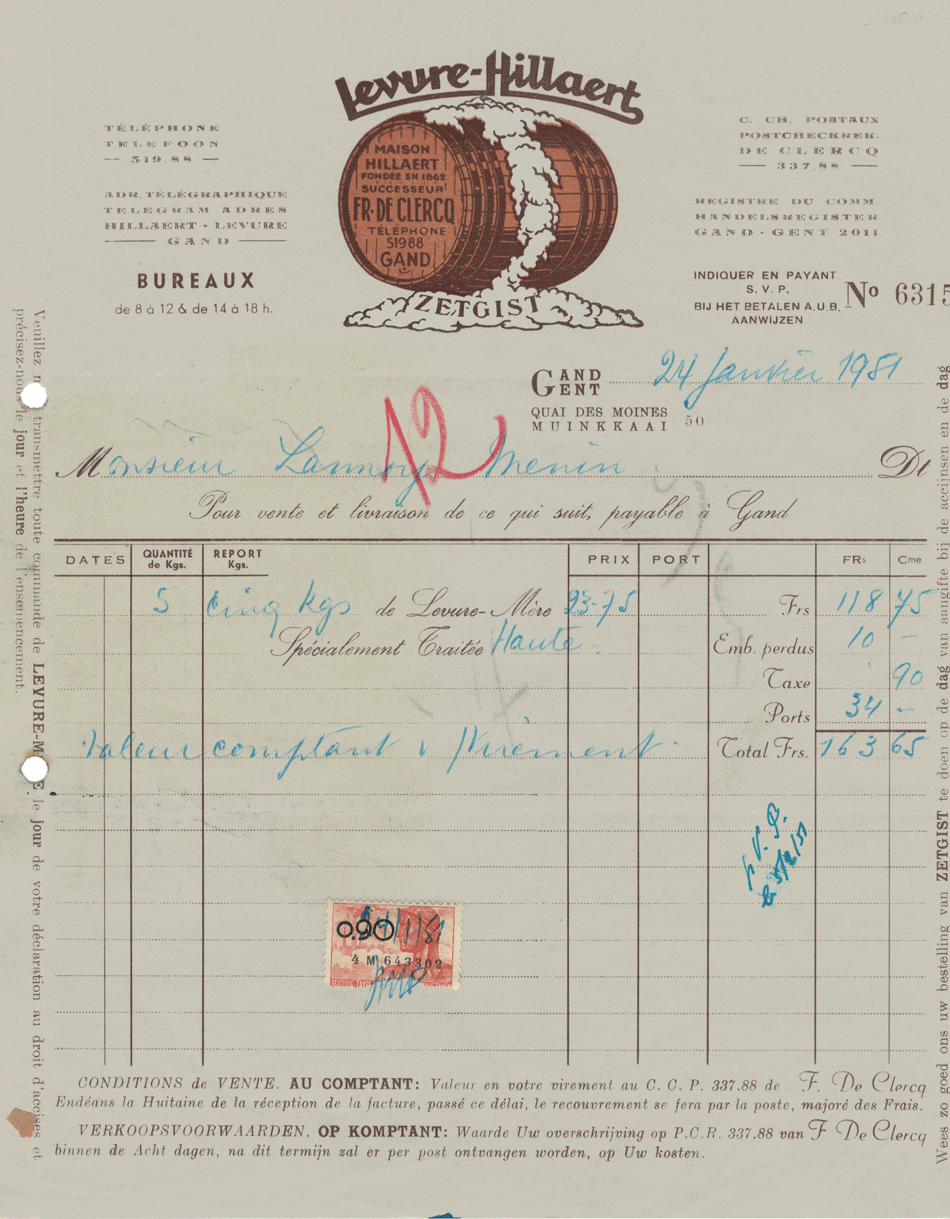 Levure-Hillaert
TÉLÉPHONE
TELEFOON
— 519.88 —
ADR. TÉLÉGRAPHIQUE
TELEGRAM ADRES
HILLAERT - LEVURE
GAND
BUREAUX
de 8 à 12 & de 14 à 18 h.
MAISON
HILLAERT
FONDÉE EN 1862
SUCCESSEUR
FR. DE CLERCQ
TÉLÉPHONE
51988
GAND
ZETGIST
C. CH. POSTAUX
POSTCHECKREK.
DE CLERCQ
— 337.88 —
REGISTRE DU COMM.
HANDELSREGISTER
GAND - GENT 2011
INDIQUER EN PAYANT
S. V. P.
BIJ HET BETALEN A.U.B.
AANWIJZEN
No 6315
GAND
GENT
24 Janvier 1951
QUAI DES MOINES
MUINKKAAI
50
12
Monsieur Lannoy Menin. Dt
Pour vente et livraison de ce qui suit, payable à Gand
DATES QUANTITÉ de Kgs. REPORT Kgs. PRIX PORT FRs Cme
5 cinq kgs de Levure-Mère 23-75 Frs 118 75
Spécialement Traitée Haute. Emb. perdus 10 -
Taxe 90
Ports 34 -
Valeur comptant v/virement. Total Frs. 163 65
0.90
4 M 643302
CONDITIONS de VENTE. AU COMPTANT: Valeur en votre virement au C. C. P. 337.88 de F. De Clercq
Endéans la Huitaine de la réception de la facture, passé ce délai, le recouvrement se fera par la poste, majoré des Frais.
VERKOOPSVOORWAARDEN. OP KOMPTANT: Waarde Uw overschrijving op P.C.R. 337.88 van F De Clercq
binnen de Acht dagen, na dit termijn zal er per post ontvangen worden, op Uw kosten.
Veuillez transmettre toute commande de LEVURE-M E le jour de votre déclaration au droit d'accises et
précisez-nous le jour et l'heure de l'ensemencement.
Wees zo goed ons uw bestelling van ZETGIST te doen op de dag van aangifte bij de accijnsen en de dag